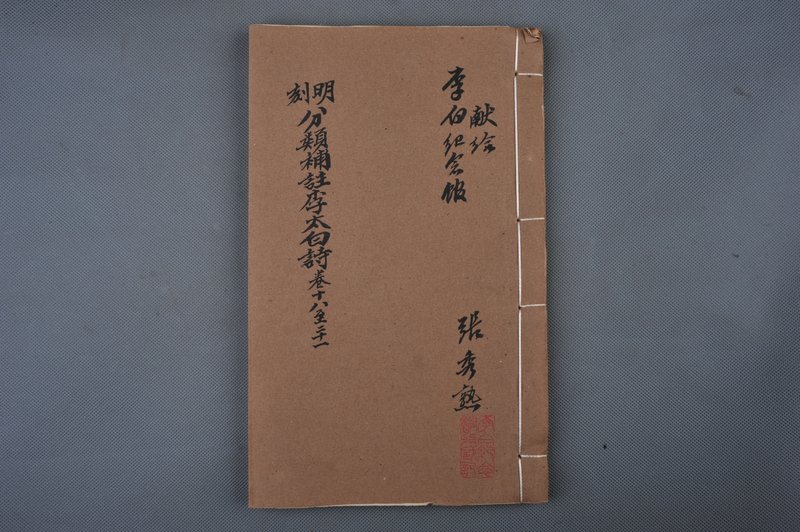 献给
李白纪念馆
張秀熟
明刻
分類補註李太白詩卷十八至二十一